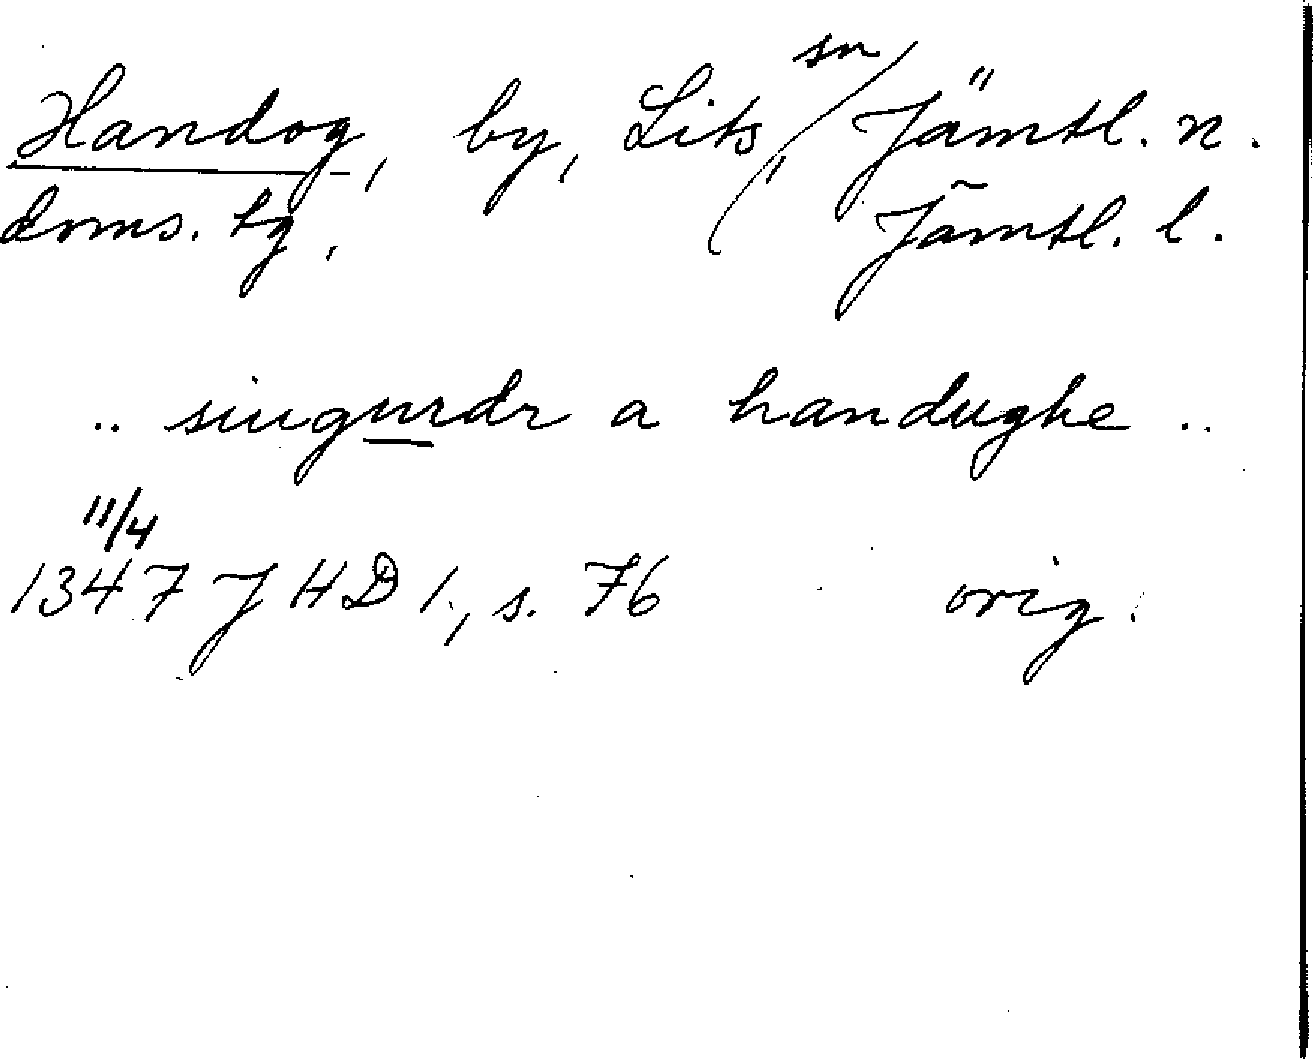 Handog, by, Lits sn, Jämtl. n.
doms. tg, Jämtl. l.
.. siugurdr a handughe ..
11/4
1347 JHD 1, s. 76 orig.